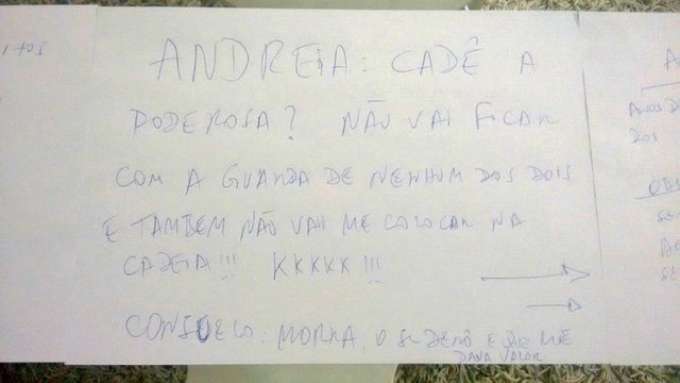 ANDREIA: CADÊ A
PODEROSA? NÃO VAI FICAR
COM A GUARDA DE NENHUM DOS DOIS
E TAMBEM NÃO VAI ME COLOCAR NA
CADEIA!!! KKKKK!!!
CONSUELO: MORRA, O
E ME
DAVA VALOR